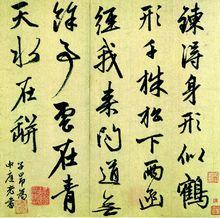 鍊得身形似鶴
形千株松下兩函
經我來問道無
餘雲在青
天水在缾
子昂為
中庭老書